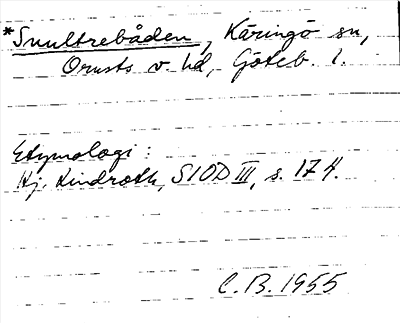 *Snultrebåden, Käringö sn,
Orusts v. hd, Göteb. l.
Etymologi:
Hj. Lindroth, SIOD III, s. 174.
C.B. 1955